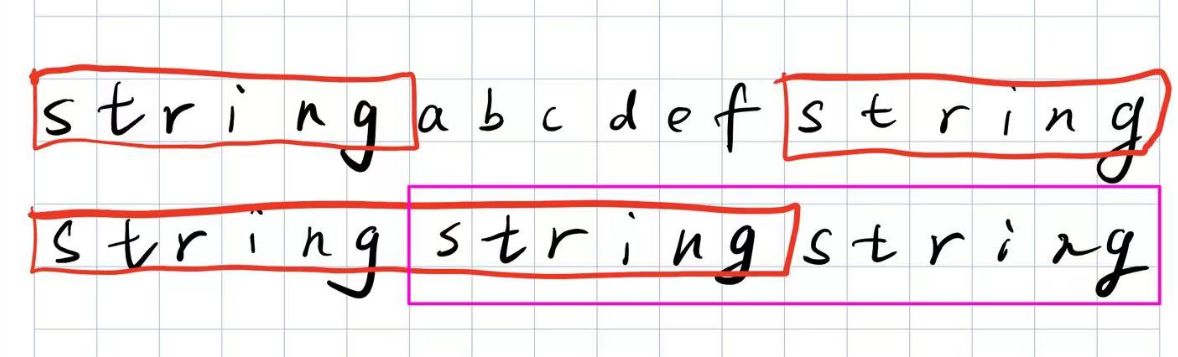 stringabcdefstring
stringstringstring